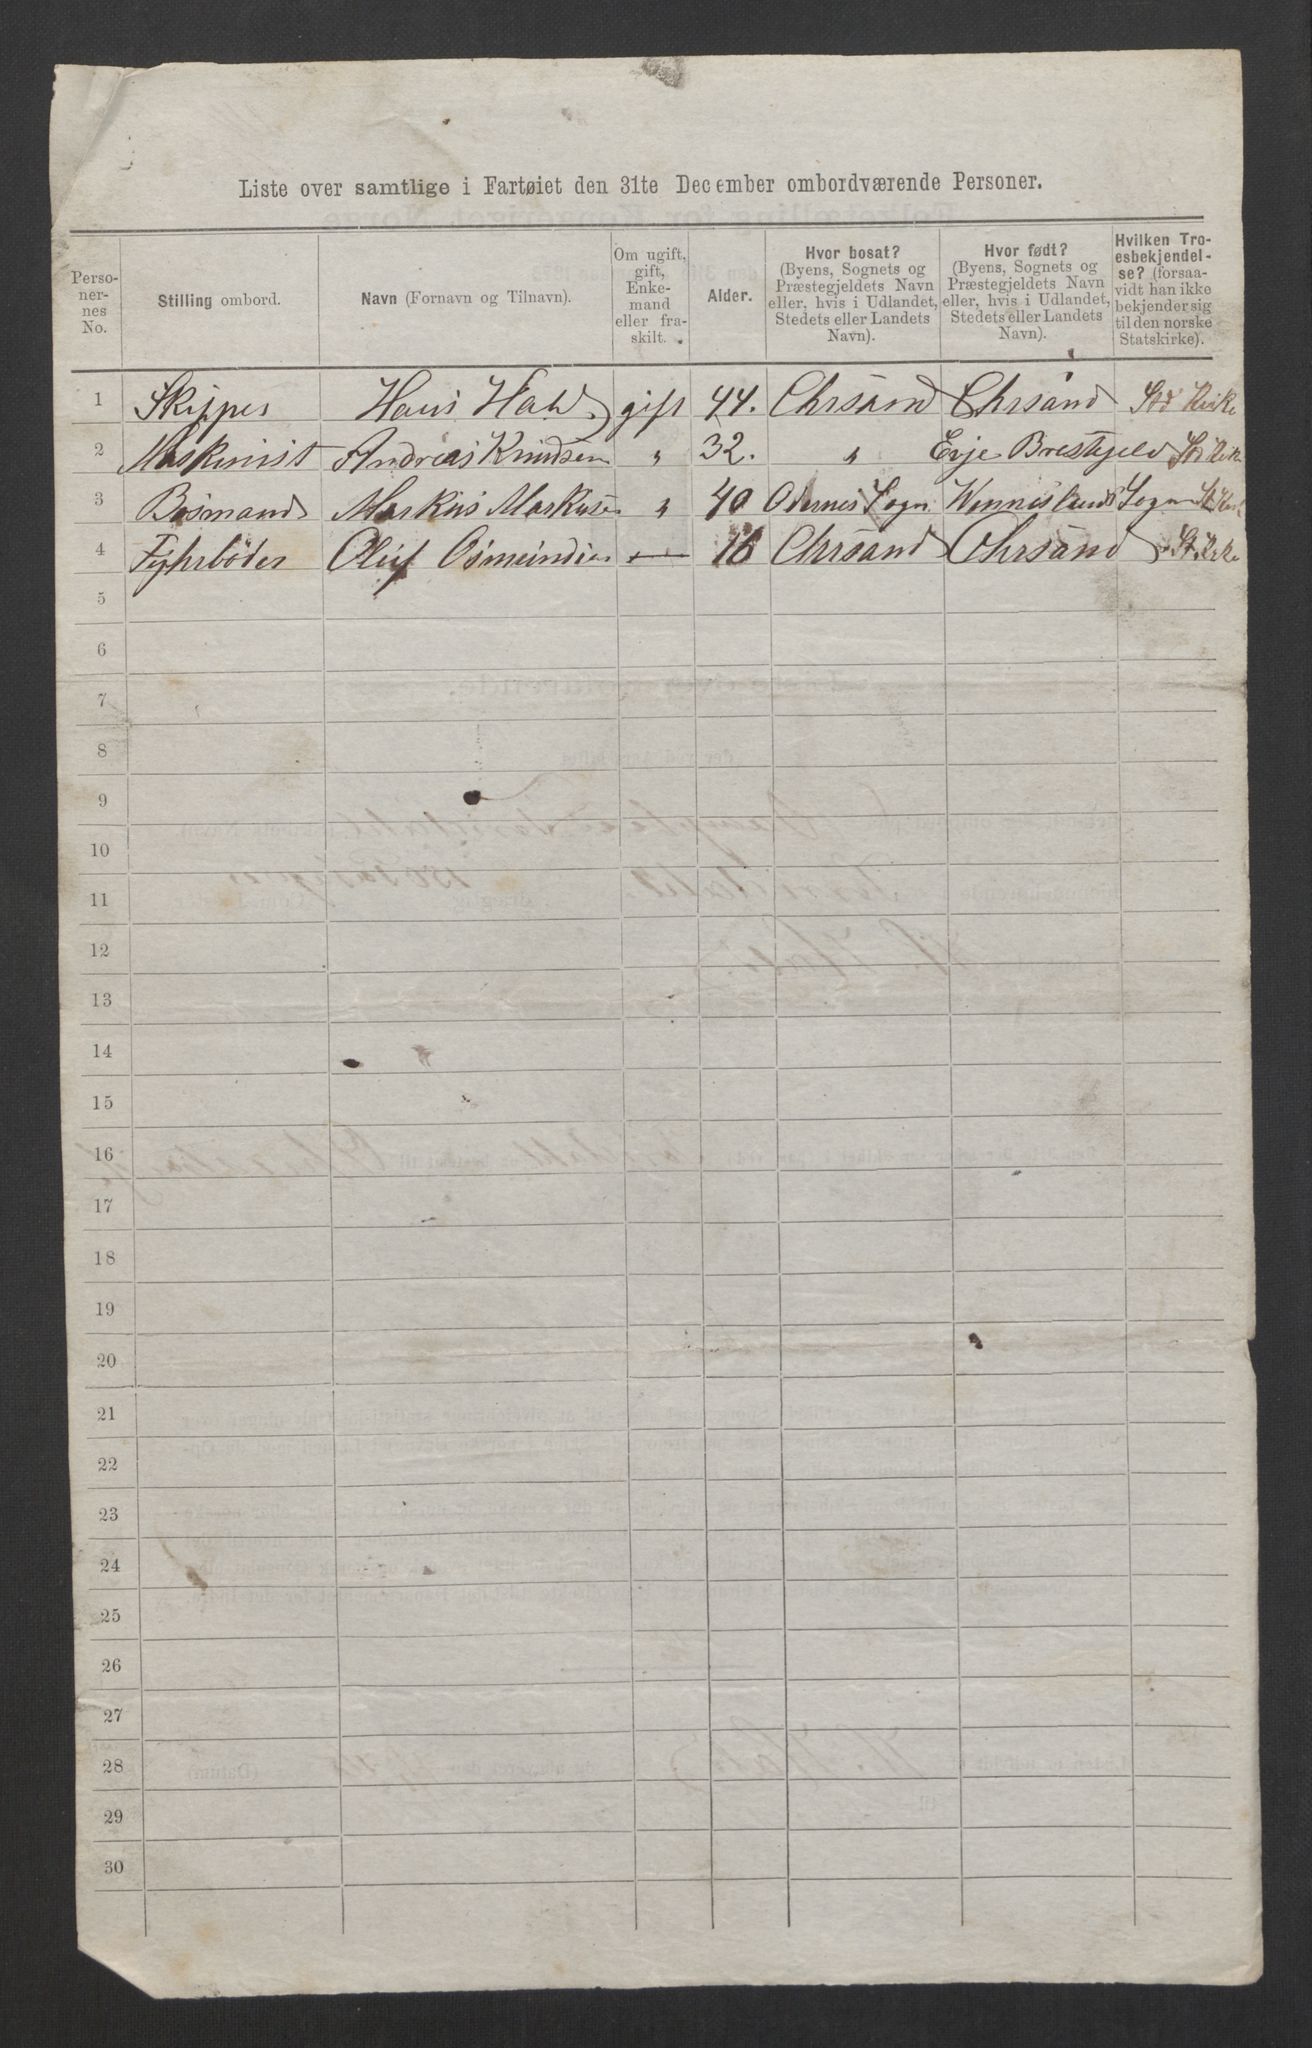 Liste over samtlige i Fartøiet den 31te December ombordværende Personer.
Perso-
ner-
nes
No.
Stilling ombord.
Navn (Fornavn og Tilnavn).
Om ugift,
gift,
Enke-
mand
eller fra-
skilt.
Alder.
Hvor bosat?
(Byens, Sognets og
Præstegjeldets Navn
eller, hvis i Udlandet,
Stedets eller Landets
Navn).
Hvor født?
(Byens, Sognets og
Præstegjeldets Navn
eller, hvis i Udlandet,
Stedets eller Landets
Navn).
Hvilken Tro-
esbekjendel-
se? (forsaa-
vidt han ikke
bekjender sig
til den norske
Statskirke).
1 Skipper Hans gift 44. Chrsand Chrsand
2 Maskinist Andreas Knudsen " 32. " Evje
3 Bosmand Markus " 40 Sogn Sogn
4 Fyhrböder Oluf — 16 Chrsand Chrsand
5
6
7
8
9
10
11
12
13
14
15
16
17
18
19
20
21
22
23
24
25
26
27
28
29
30